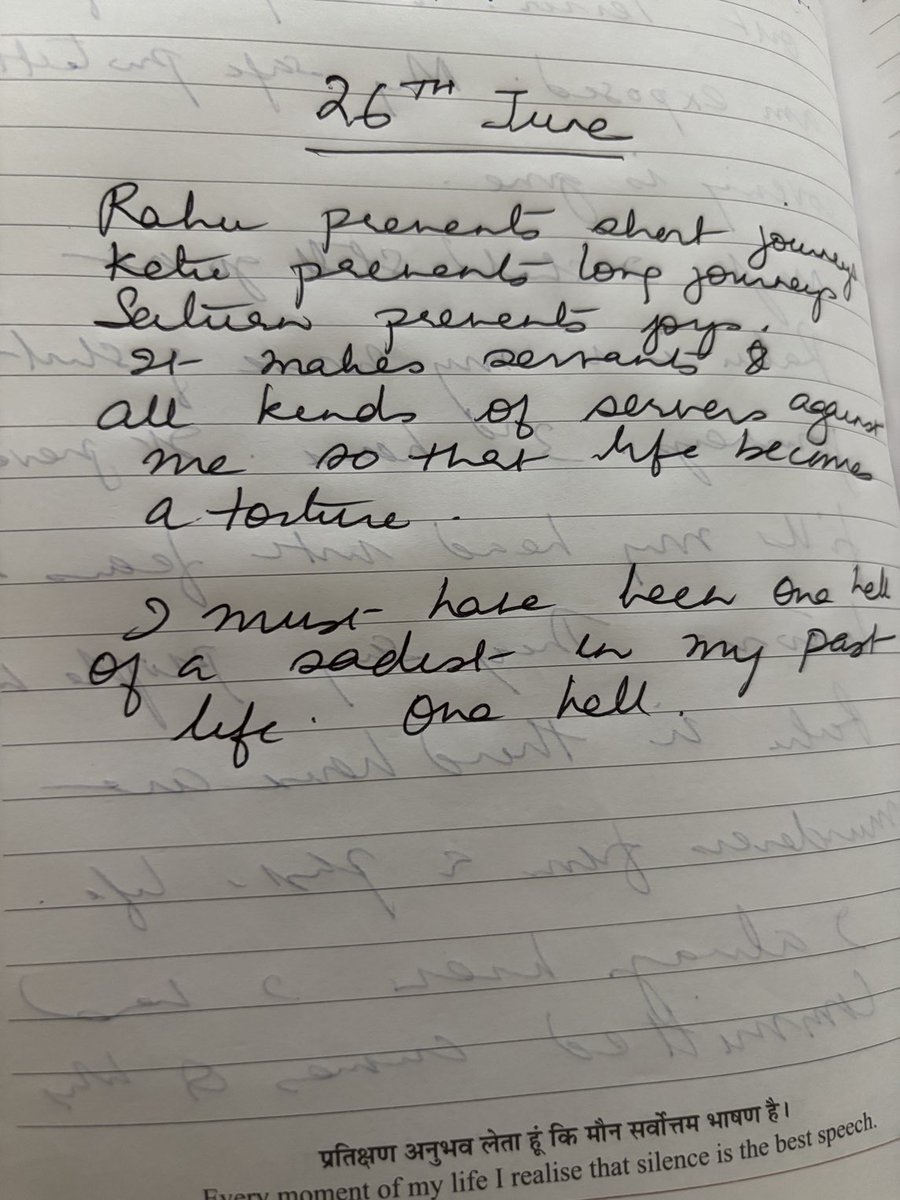 26TH June
Rahu prevents short journeys
Ketu prevents long journeys
Saturn prevents joys.
It makes servants &
all kinds of servers against
me so that life becomes
a torture.
I must have been one hell
of a sadist in my past
life. One hell.
प्रतिक्षण अनुभव लेता हूं कि मौन सर्वोत्तम भाषण है।
Every moment of my life I realise that silence is the best speech.